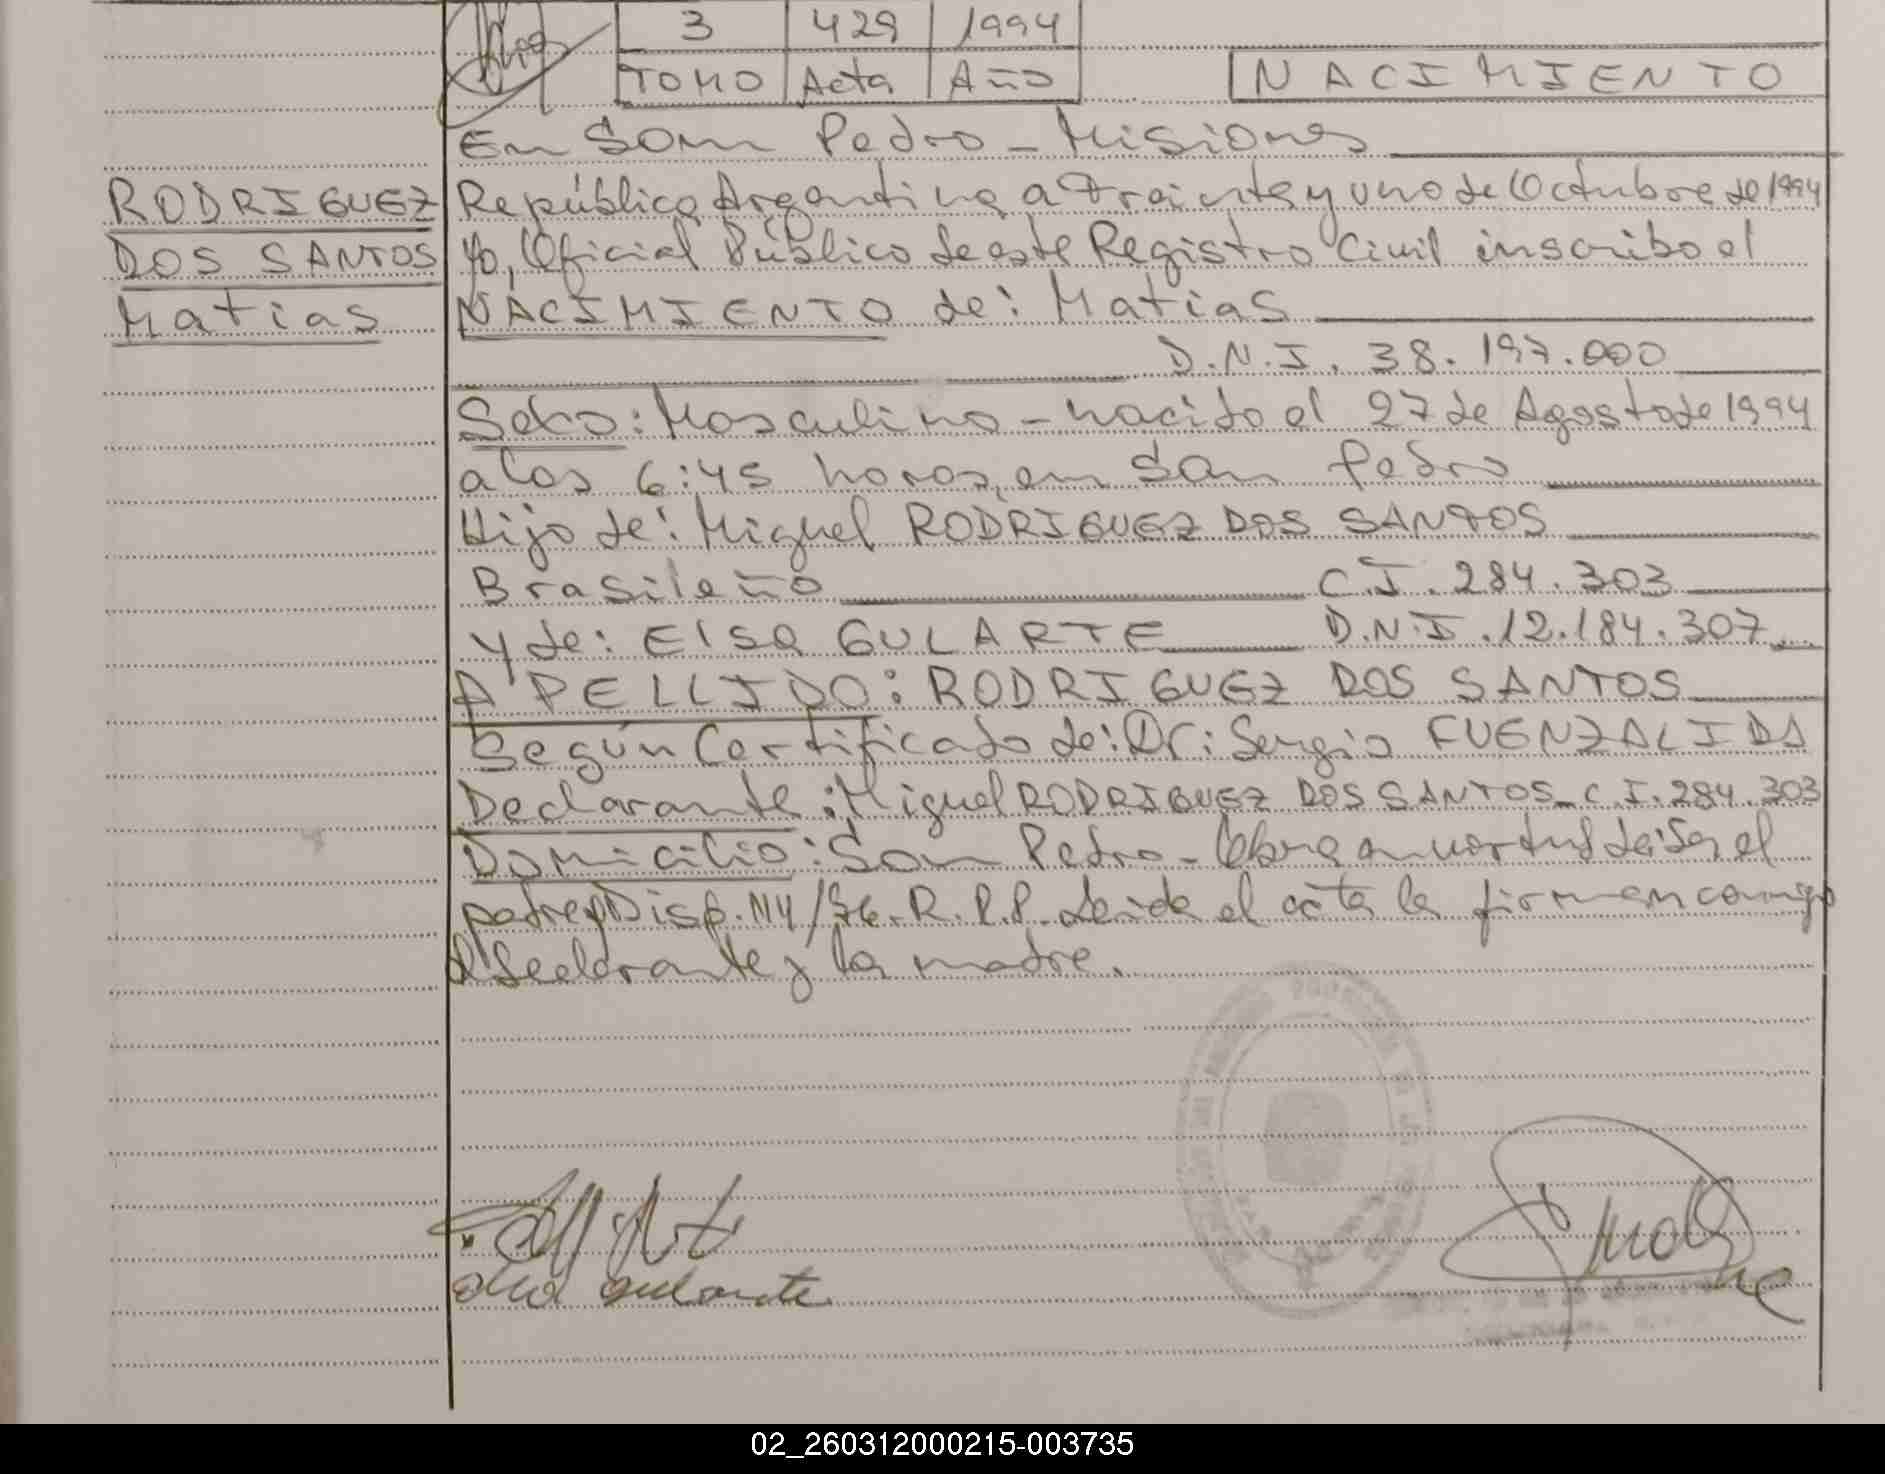 3 429 1994
TOMO Acta Año
NACIMIENTO
RODRIGUEZ
DOS SANTOS
Matias
En San Pedro - Misiones
República Argentina, a treinta y uno de Octubre de 1994
Yo, Oficial Público de este Registro Civil inscribo el
NACIMIENTO de: Matias
D.N.I. 38.197.000
Sexo: Masculino - nacido el 27 de Agosto de 1994
a las 6:45 horas, en San Pedro
Hijo de: Miguel RODRIGUEZ DOS SANTOS
Brasileño C.I. 284.303
y de: Elsa GULARTE D.N.I. 12.184.307
APELLIDO: RODRIGUEZ DOS SANTOS
Según Certificado de: Dr: Sergio FUENZALIDA
Declarante: Miguel RODRIGUEZ DOS SANTOS - C.I. 284.303
Domicilio: San Pedro - Obra en virtud de: Ser el
padre y Disp. 114/76. R.P.P. Leida el acta la firman conmigo
el declarante y la madre.
elsa gularte
02_260312000215-003735